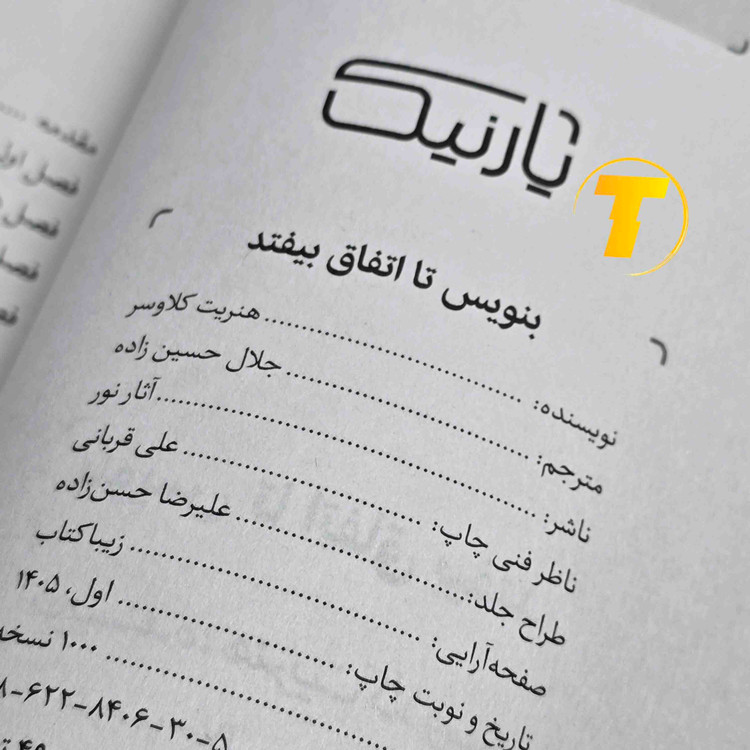 یارنیک
T
بنویس تا اتفاق بیفتد
نویسنده: هنریت کلاوسر
مترجم: جلال حسین زاده
ناشر: آثار نور
ناظر فنی چاپ: علی قربانی
طراح جلد: علیرضا حسن‌زاده
صفحه‌آرایی: زیباکتاب
تاریخ و نوبت چاپ: اول، ۱۴۰۵
۱۰۰۰ نسخه
۸-۶۲۲-۸۴۰۶-۳۰-۵
مقدمه
فصل اول
فصل